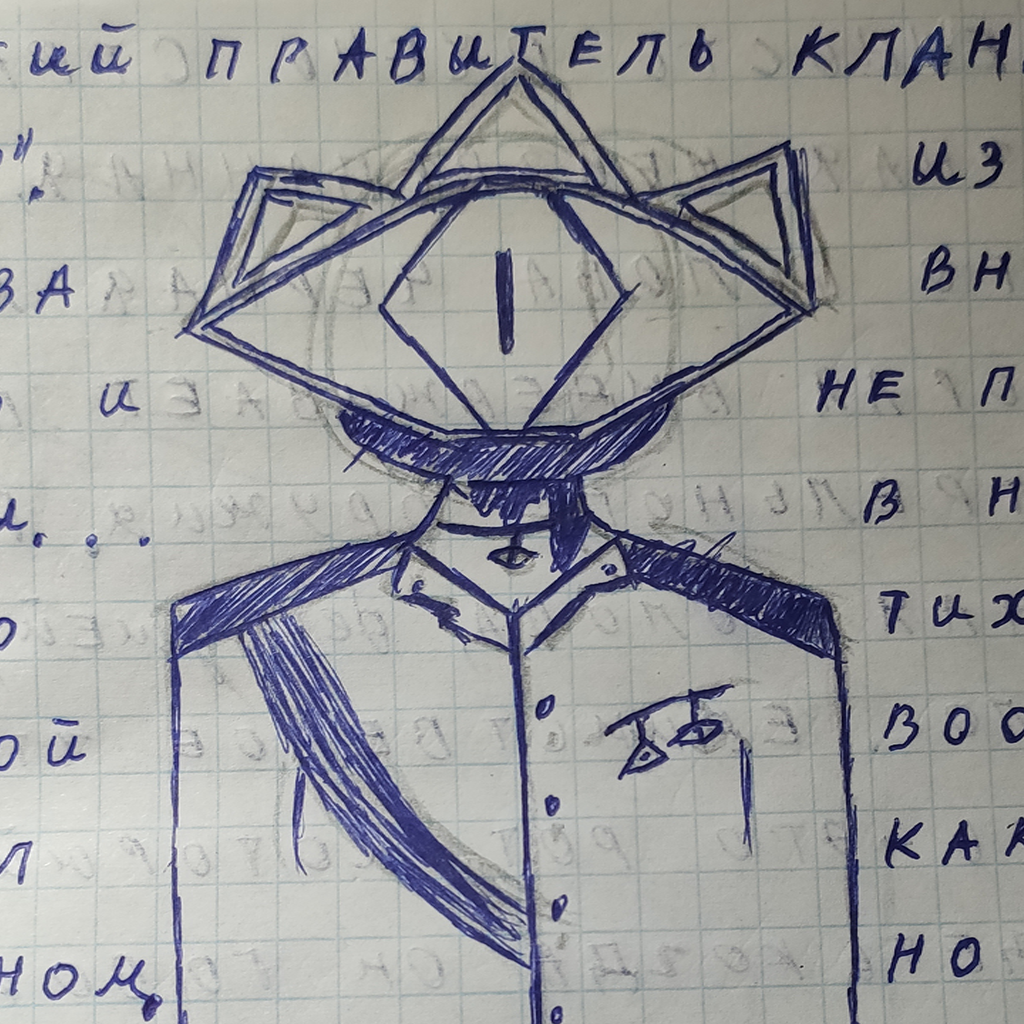 ий ПРАВИТЕЛЬ КЛАН
ИЗ
ЗА ВН
И НЕ П
В Н
О ТИХ
ОЙ ВОО
Л КАК
НОМ, НО